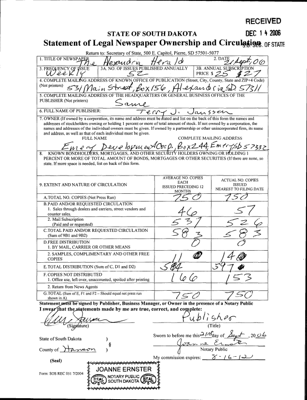 RECEIVED
DEC 14 2006
S.D. SEC. OF STATE
STATE OF SOUTH DAKOTA
Statement of Legal Newspaper Ownership and Circulation
Return to: Secretary of State, 500 E. Capitol, Pierre, SD 57501-5077
1. TITLE OF NEWSPAPER The Alexandria Herald
2. DATE
3. FREQUENCY OF ISSUE Weekly
3A. NO. OF ISSUES PUBLISHED ANNUALLY 52
3B. ANNUAL SUBSCRIPTION PRICE $ 25 $27
4. COMPLETE MAILING ADDRESS OF KNOWN OFFICE OF PUBLICATION (Street, City, County, State and ZIP+4 Code) (Not printers)
531 Main Street, Box 456, Alexandria SD 57311
5. COMPLETE MAILING ADDRESS OF THE HEADQUARTERS OR GENERAL BUSINESS OFFICES OF THE PUBLISHER (Not printers)
Same
6. FULL NAME OF PUBLISHER:
7. OWNER (If owned by a corporation, its name and address must be stated and list on the back of this form the names and addresses of stockholders owning or holding 1 percent or more of total amount of stock. If not owned by a corporation, the names and addresses of the individual owners must be given. If owned by a partnership or other unincorporated firm, its name and address, as well as that of each individual must be given.
FULL NAME
COMPLETE MAILING ADDRESS
8. KNOWN BONDHOLDERS, MORTGAGEES, AND OTHER SECURITY HOLDERS OWNING OR HOLDING 1 PERCENT OR MORE OF TOTAL AMOUNT OF BONDS, MORTGAGES OR OTHER SECURITIES (If there are none, so state. If more space is needed, list on back of this form.
9. EXTENT AND NATURE OF CIRCULATION
AVERAGE NO. COPIES EACH ISSUED PRECEDING 12 MONTHS
ACTUAL NO. COPIES ISSUED NEAREST TO FILING DATE
A. TOTAL NO. COPIES (Net Press Run) 750 750
B. PAID AND/OR REQUESTED CIRCULATION
1. Sales through dealers and carriers, street vendors and counter sales. 46 57
2. Mail Subscription (Paid and or requested) 537 526
C. TOTAL PAID AND/OR REQUESTED CIRCULATION (Sum of 9B1 and 9B2). 583 583
D. FREE DISTRIBUTION
1. BY MAIL, CARRIER OR OTHER MEANS 0 0
2. SAMPLES, COMPLIMENTARY AND OTHER FREE COPIES
E. TOTAL DISTRIBUTION (Sum of C, D1 and D2) 584
F. COPIES NOT DISTRIBUTED
1. Office use, left over, unaccounted, spoiled after printing 166 153
2. Return from News Agents
G. TOTAL (Sum of E, F1 and F2 - Should equal net press run shown in A) 750 750
Statement must be signed by Publisher, Business Manager, or Owner in the presence of a Notary Public
I swear that the statements made by me are true, correct, and complete:
Publisher
(Signature)
(Title)
State of South Dakota )
County of Hanson )
(Seal)
Sworn to before me this
Joanne Ernster
Notary Public
My commission expires: 8-16-12
JOANNE ERNSTER
NOTARY PUBLIC
SOUTH DAKOTA
SEAL